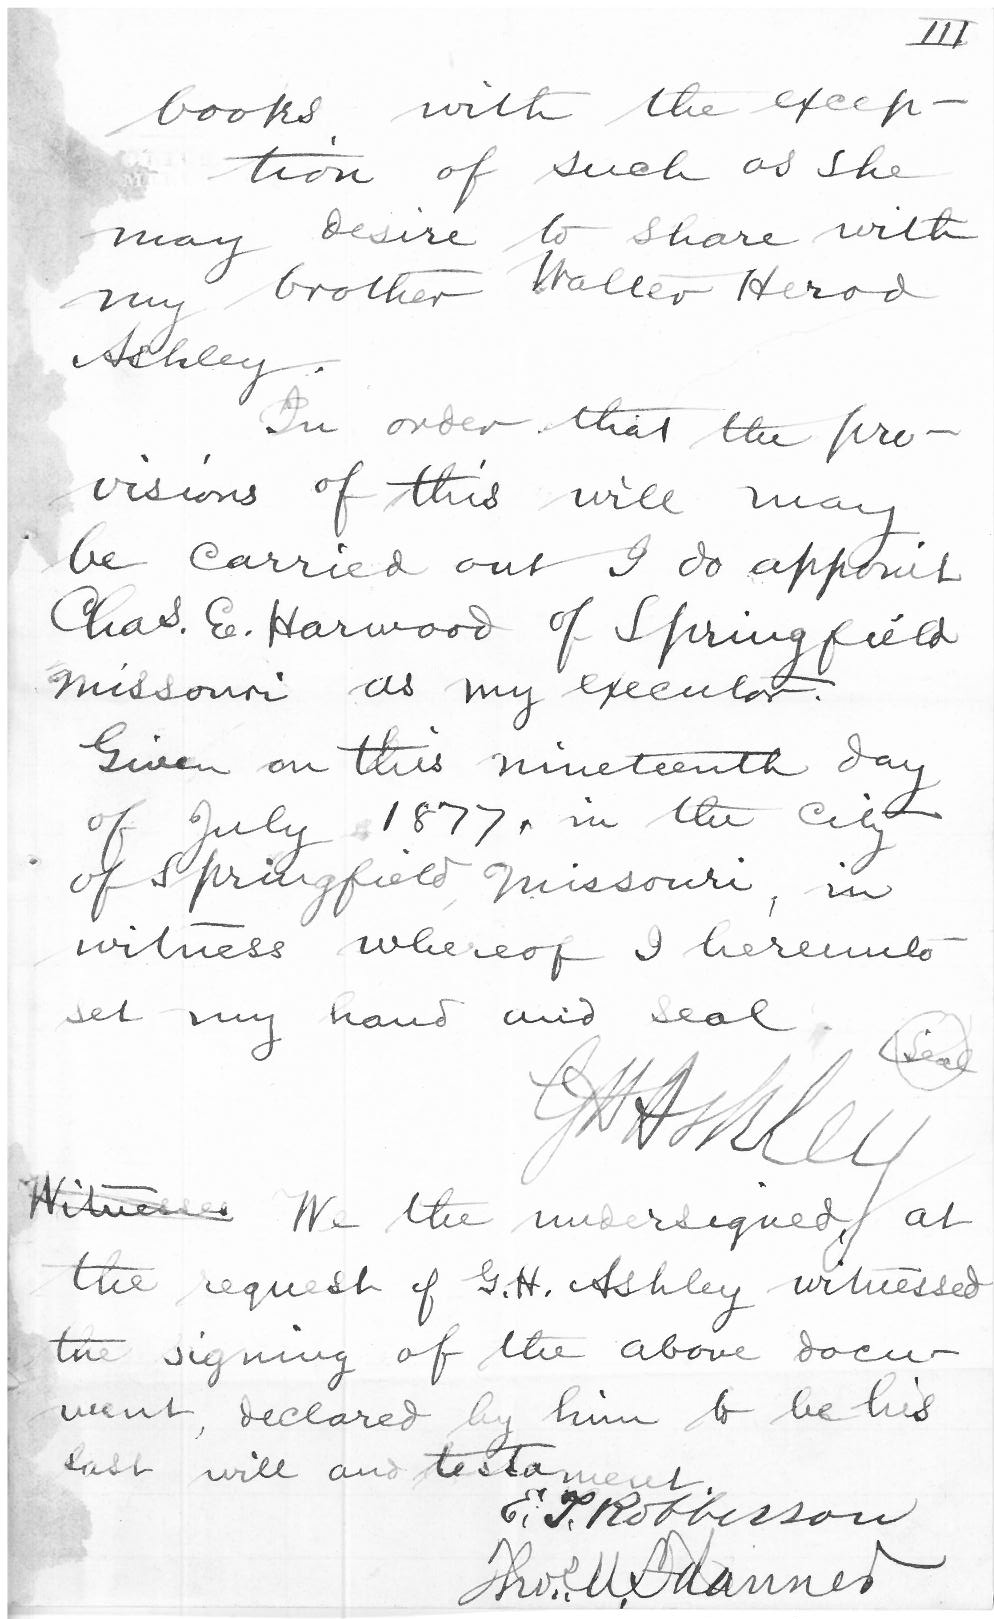 III
books, with the excep-
tion of such as she
may desire to share with
my brother Walter Herod
Ashley.
In order that the pro-
visions of this will may
be carried out I do appoint
Chas. E. Harwood of Springfield
Missouri as my executor.
Given on this nineteenth day
of July 1877, in the city
of Springfield, Missouri, in
witness whereof I hereunto
set my hand and seal.
Seal
GH Ashley
Witnesses We the undersigned, at
the request of G.H. Ashley witnessed
the signing of the above docu-
ment, declared by him to be his
last will and testament.
E. T. Robberson
Thos. U.